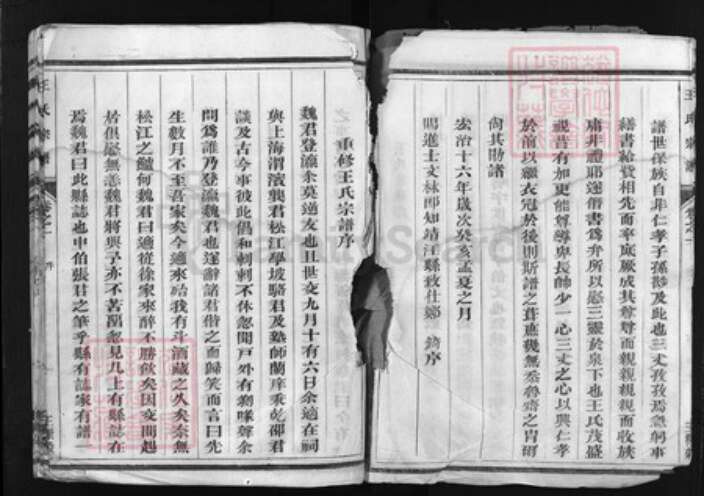 譜世保族自非仁孝子孫尠及此也三丈孜孜焉急躬事
繕書給費相先而率底厥成其尊尊而親親親親而收族
庸非禮耶遂借書為弁所以慰三靈於泉下也王氏茂盛
視昔有加更能尊尊卑長帥少一心三丈之心以興仁孝
於前以繼衣冠於後則斯譜之葺應幾無忝魯齋之冑爾
尙其勛諸
宏治十六年歲次癸亥孟夏之月
賜進士文林郎知靖江縣致仕鄭 錡序
重修王氏宗譜序
魏君登瀛余莫逆友也且世交九月十有六日余適在祠
與上海渭濱龔君松江學坡駱君及塾師蘭庠秉乾邵君
談及古今事彼此倡和刺刺不休忽聞戶外有 聲余
問為誰乃登瀛魏君也遂辭諸君偕之而歸笑而言曰先
生數月不至吾家矣今適來哉我有斗酒藏之久矣奈無
松江之鱸何魏君曰適從徐家來醉不勝飲矣因交問起
居俱慰無恙魏君將與予亦不苦留忽見几上有縣誌在
焉魏君曰此縣誌也申伯張君之筆乎縣有誌家有譜一
王氏宗譜
卷之一
序